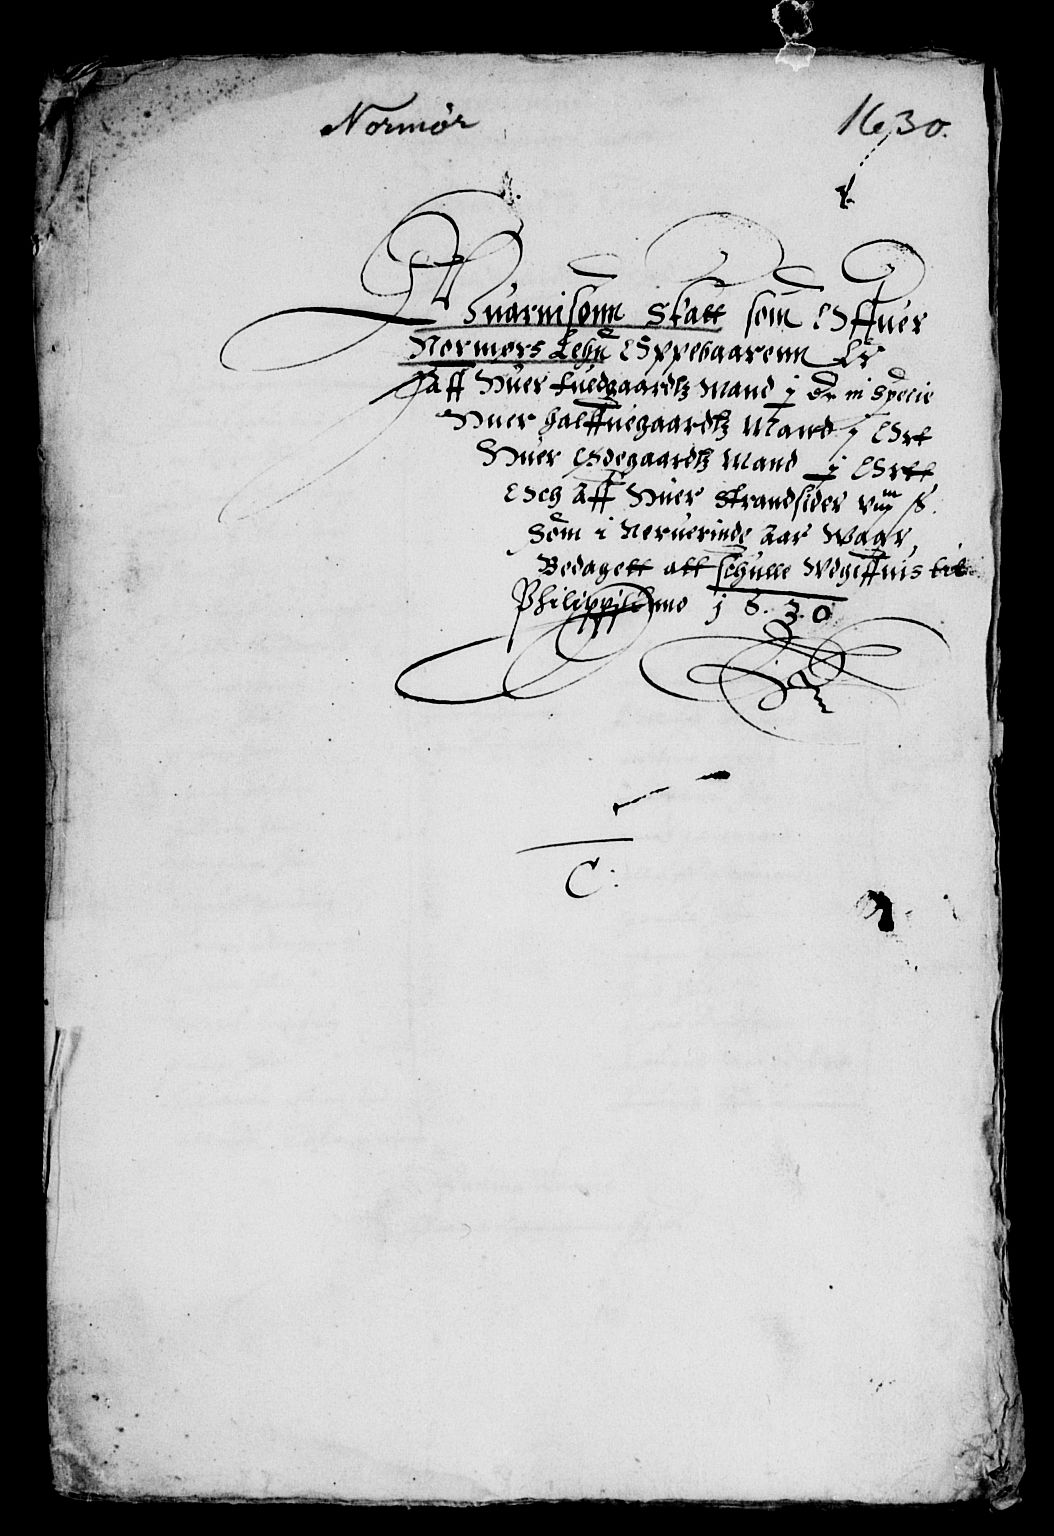 Normør 1630.
Guarnisonn Skatt som Offuer
Normørs Lehn Oppebaarenn Er
aff Huer fuedgaardtz Mand j dr in specie
Huer halffuegaardtz Mand j Ort
Huer Ødegaardtz Mand j Ortt
Och Aff Huer Strandsider viij ß.
Som i Neruerinde Aar Waar
Bedagett att schulle Wdgiffuis til
Philippi 1630
C: